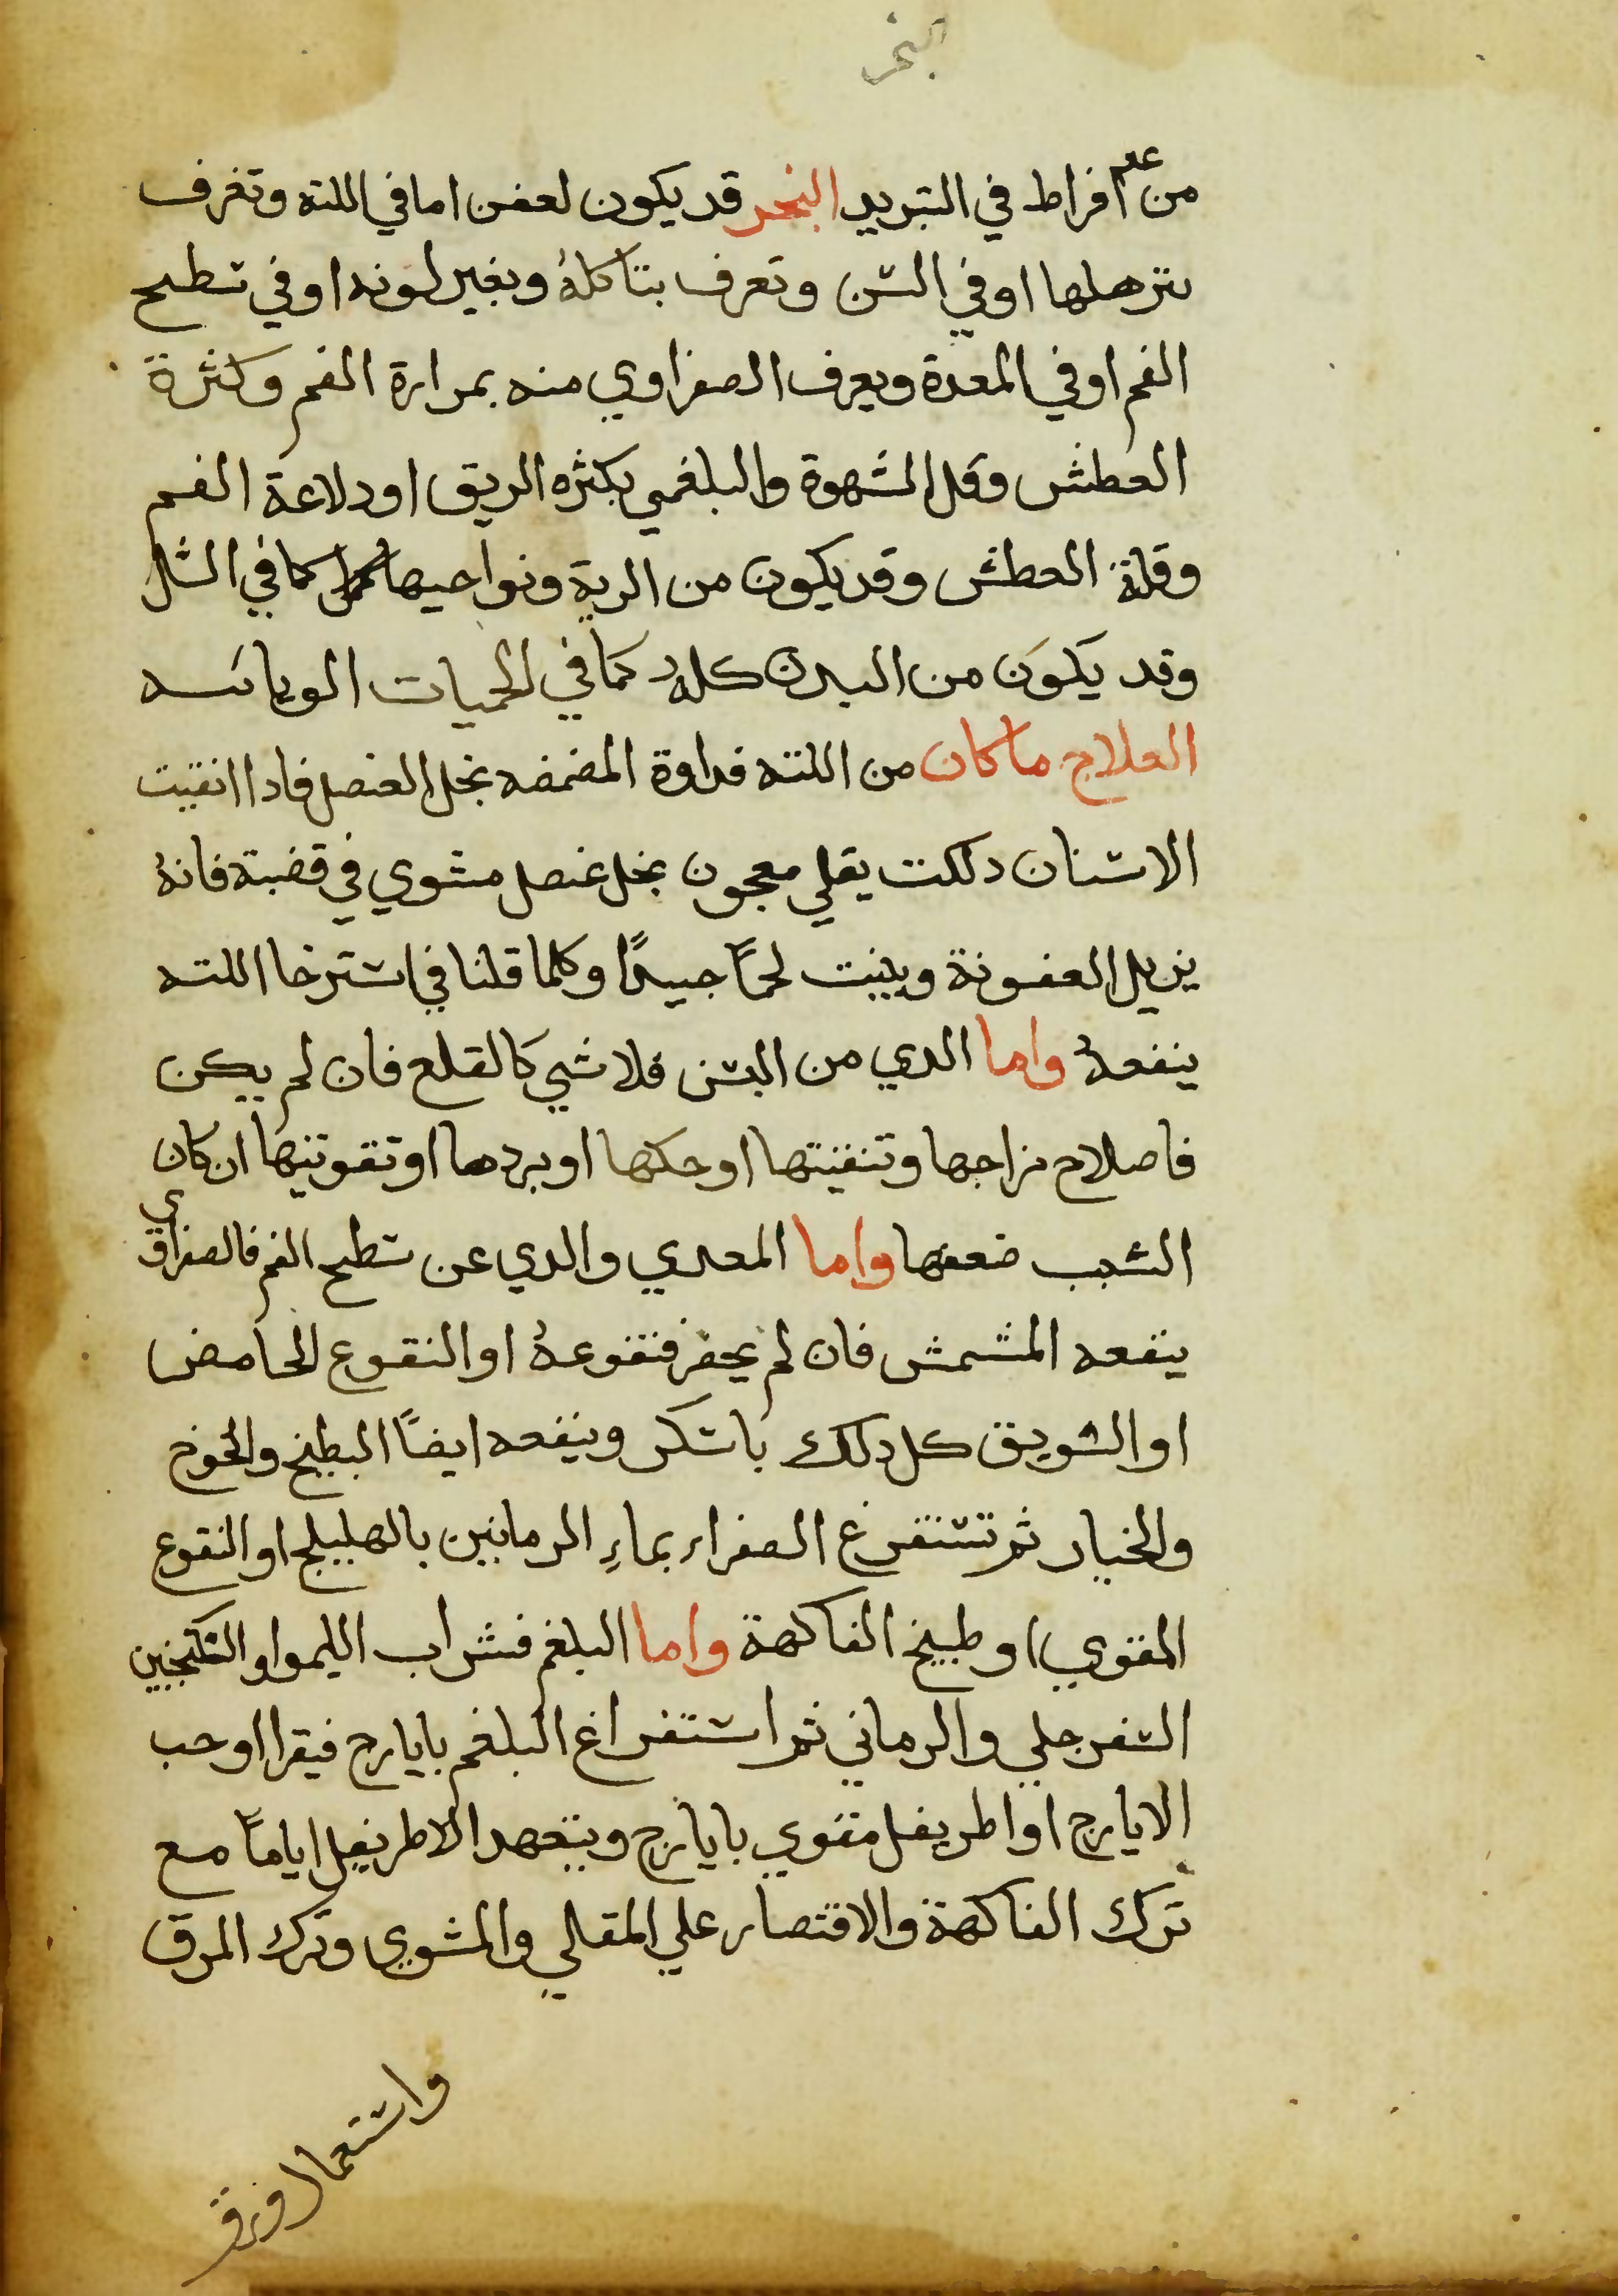 البخر
من غير افراط في التبريد البخر قد يكون لعفن اما في اللثه وتعرف
بترهلها او في السن وتعرف بتاكله وبغير لونه او في سطح
الفم او في المعدة ويعرف الصفراوي منه بمرارة الفم وكثرة
العطش وقل الشهوة والبلغمي بكثره الريق او دلاعة الفم
وقلة العطش وقد يكون من الرية ونواحيها كما في السل
وقد يكون من البدن كله كما في الحميات الوبائيه
العلاج ما كان من اللثه فداوة المضمضه بخل العنصل فادا انقيت
الاسنان دلكت بقلي معجون بخل عنصل مشوي في قضبة فانه
يزيل العفونة وينبت لحمًا جيدًا وكلما قلنا في استرخا اللثه
ينفعه واما الدي من السن فلا شي كالقلع فان لم يكن
فاصلاح مزاجها وتنقيتها او حكها او بردها او تقويتها ان كان
السبب ضعفها واما المعدي والدي عن سطح الفم فالصفراوي
ينفعه المشمش فان لم يحضر فنقوعه او النقوع الحامض
او السويق كل دلك باسكر وينفعه ايضًا البطيخ والخوخ
والخيار ثم تستفرغ الصفراء بماءِ الرمانين بالهليلج او النقوع
المقوي او طبيخ الفاكهة واما البلغم فشراب الليمو او السكنجبين
السفرجلي والرماني ثم استفراغ البلغم بايارج فيقرا او حب
الايارج او اطريفل مقوي بايارج ويتعهد الاطريفل ايامًا مع
ترك الفاكهة والاقتصار علي المقالي والمشوي وترك المرق
واستعمال ورق